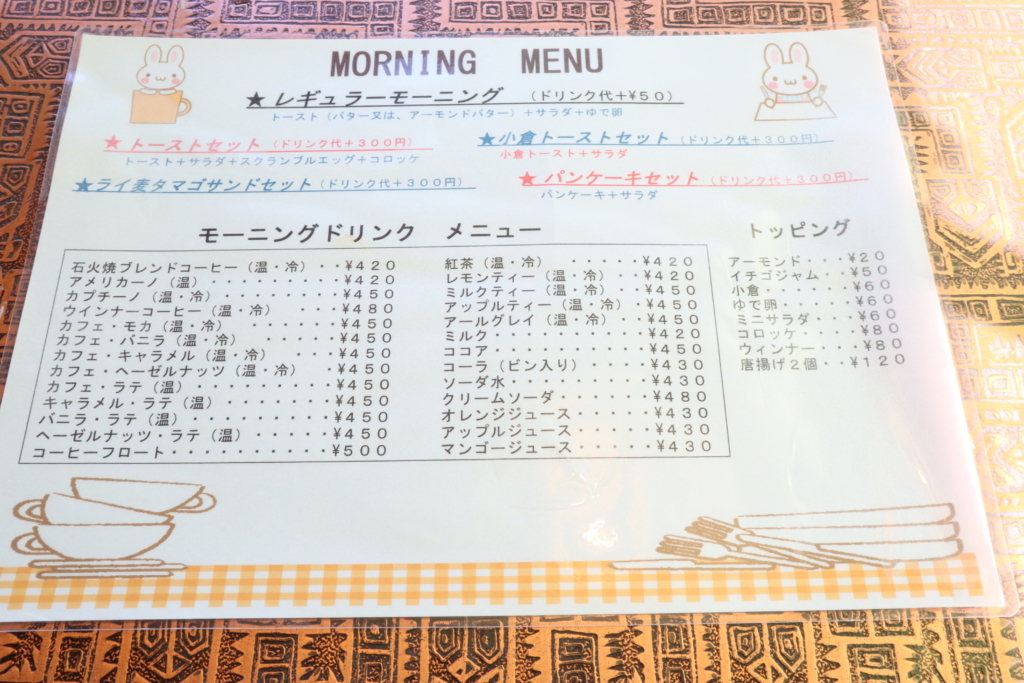 MORNING MENU
★レギュラーモーニング (ドリンク代+¥50)
トースト(バター又は、アーモンドバター)+サラダ+ゆで卵
★トーストセット (ドリンク代+300円)
トースト+サラダ+スクランブルエッグ+コロッケ
★小倉トーストセット (ドリンク代+300円)
小倉トースト+サラダ
★ライ麦タマゴサンドセット(ドリンク代+300円)
★パンケーキセット (ドリンク代+300円)
パンケーキ+サラダ
モーニングドリンク メニュー
石火焼ブレンドコーヒー(温・冷)・・¥420
アメリカーノ(温)・・・・・・・・・¥420
カプチーノ(温・冷)・・・・・・・・¥450
ウインナーコーヒー(温・冷)・・・・¥480
カフェ・モカ(温・冷)・・・・・・・¥450
カフェ・バニラ(温・冷)・・・・・・¥450
カフェ・キャラメル(温・冷)・・・・¥450
カフェ・ヘーゼルナッツ(温・冷)・¥450
カフェ・ラテ(温)・・・・・・・・・¥450
キャラメル・ラテ(温)・・・・・・・¥450
バニラ・ラテ(温)・・・・・・・・・¥450
ヘーゼルナッツ・ラテ(温)・・・・・¥450
コーヒーフロート・・・・・・・・・・¥500
紅茶(温・冷)・・・・・・¥420
レモンティー(温・冷)・・・¥420
ミルクティー(温・冷)・・・¥450
アップルティー(温・冷)・・¥450
アールグレイ(温・冷)・・・¥450
ミルク・・・・・・・・・・¥420
ココア・・・・・・・・・・¥450
コーラ(ビン入り)・・・・¥430
ソーダ水・・・・・・・・・¥430
クリームソーダ・・・・・・¥480
オレンジジュース・・・・・¥430
アップルジュース・・・・・¥430
マンゴージュース・・・・・¥430
トッピング
アーモンド・・・¥20
イチゴジャム・・¥50
小倉・・・・・・¥60
ゆで卵・・・・・¥60
ミニサラダ・・・¥60
コロッケ・・・・¥80
ウィンナー・・・¥80
唐揚げ2個・・・¥120